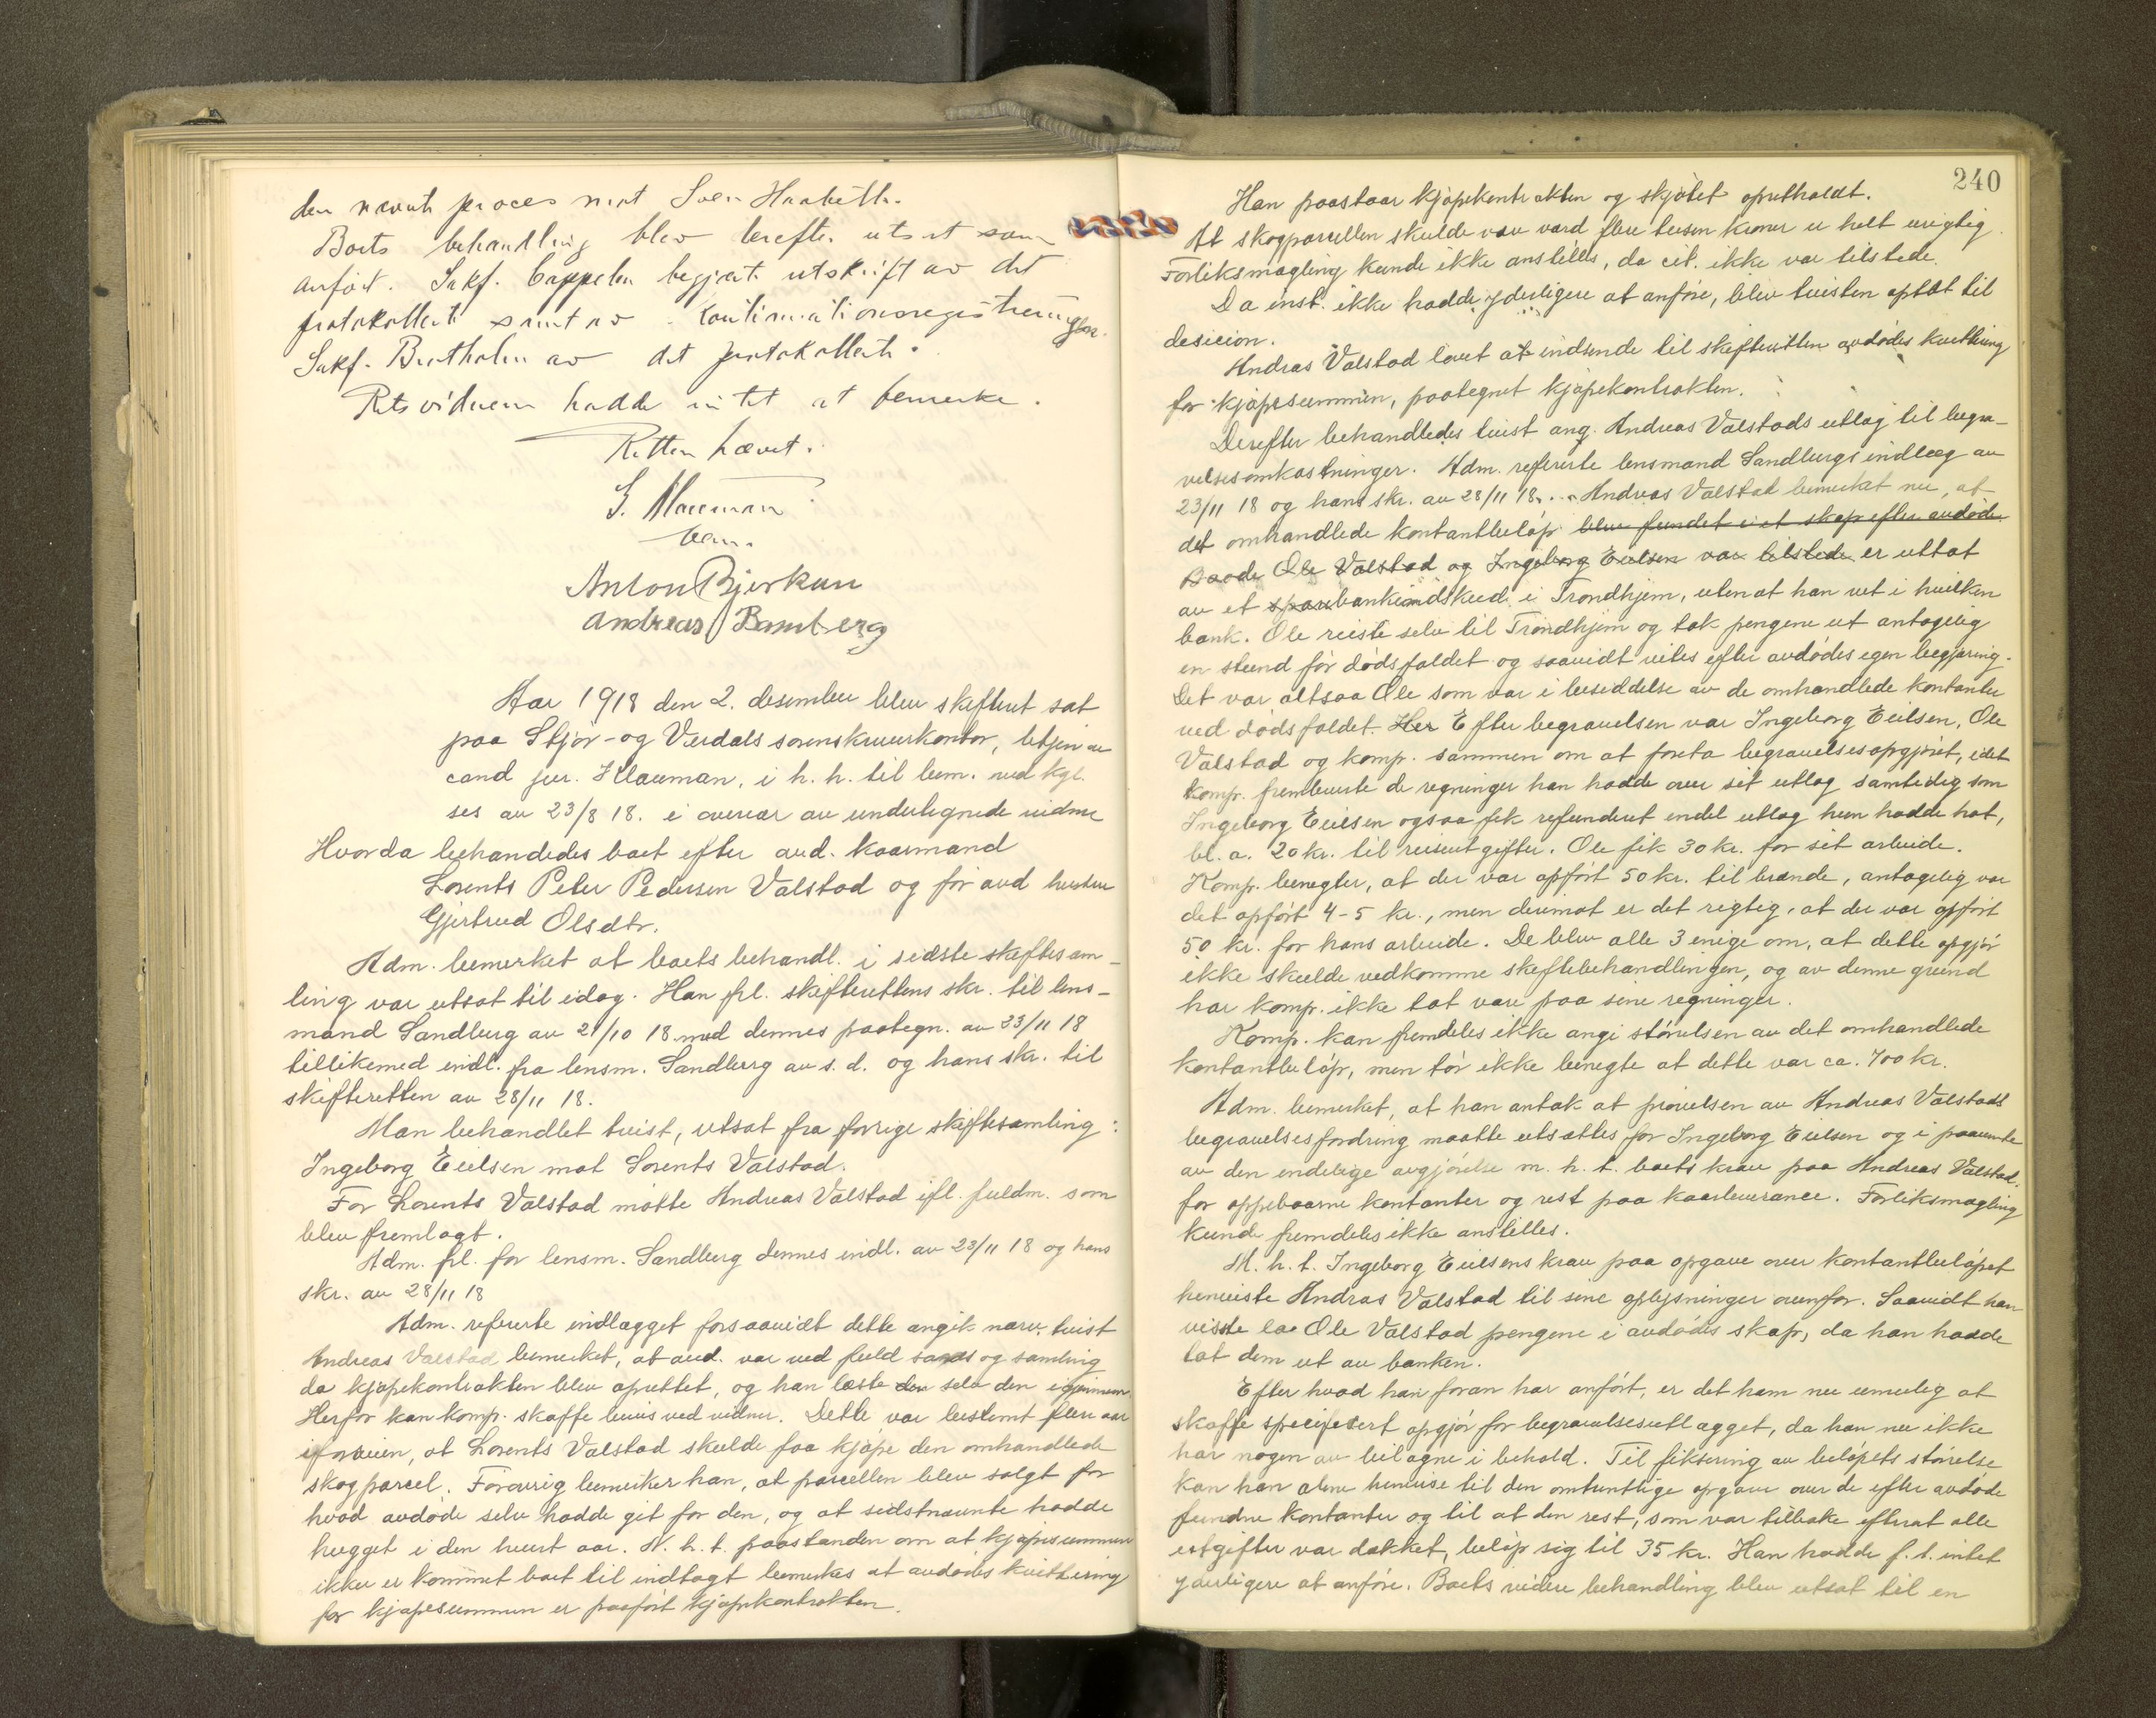 den nævnte proces mot Sven Haaketh.
Boets behandling blev derefter utsat som
anført. Sakf. Cappelen begjærte utskrift av det
protokollerte samt av kontinuationsregistreringen.
Sakf. Bratholm av det protokollerte.
Retsvidnerne hadde intet at bemerke.
Retten hævet.
J. Klauman
bem.
Anton Bjerkan
Andreas Bamberg
Aar 1918 den 2. desember blev skifteret sat
paa Stjør- og Værdals sorenskriverkontor, betjent av
cand jur. J Klauman, i h. h. til bem. ved kgl.
res av 23/8 18. i overvær av undertegnede vidner
Hvorda behandledes boet efter avd. kaarmand
Lorents Peter Pedersen Valstad og før avd hustru
Gjertrud Olsdtr.
Adm. bemerket at boets behandl. i sidste skiftesam-
ling var utsat til idag. Han frl. skifterettens skr. til lens-
mand Sandberg av 21/10 18 med dennes paategn. av 23/11 18
tillikemed indl. fra lensm. Sandberg av s. d. og hans skr. til
skifteretten av 28/11 18.
Man behandlet tvist, utsat fra forrige skiftesamling:
Ingeborg Eielsen mot Lorents Valstad.
For Lorents Valstad møtte Andreas Valstad ifl. fuldm. som
blev fremlagt.
Adm. frl. for lensm. Sandberg dennes indl. av 23/11 18 og hans
skr. av 28/11 18
Adm. refererte indlægget forsaavidt dette angik nærv. tvist
Andreas Valstad bemerket, at avd. var ved fuld sans og samling
da kjøpekontrakten blev oprettet, og han læste den selv den igjennem.
Herfor kan komp. skaffe bevis ved vidner. Dette var bestemt flere aar
iforveien, at Lorents Valstad skulde faa kjøpe den omhandlede
skogparcel. Forøvrig bemerker han, at parcellen blev solgt for
hvad avdøde selv hadde git for den, og at sidstnævnte hadde
hugget i den hvert aar. M. h. t. paastanden om at kjøpesummen
ikke er kommet boet til indtægt bemerkes at avdødes kvittering
for kjøpesummen er paaført kjøpekontrakten.
240
Han paastaar kjøpekontrakten og skjøtet opretholdt.
At skogparcellen skulde være værd flere tusen kroner er helt urigtig.
Forliksmægling kunde ikke anstilles, da cit. ikke var tilstede.
Da inst. ikke hadde yderligere at anføre, blev tvisten optat til
desicion.
Andreas Valstad lovet at indsende til skifteretten avdødes kvittering
for kjøpesummen, paategnet kjøpekontrakten.
Derefter behandledes tvist ang. Andreas Valstads utlæg til begra-
velsesomkostninger. Adm. refererte lensmand Sandbergs indlæg av
23/11 18 og hans skr. av 28/11 18. Andreas Valstad bemerket nu, at
det omhandlede kontantbeløp blev fundet i et skap efter avdøde
Baade Ole Valstad og Ingeborg Eielsen var tilstede er uttat
av et sparebankindskud i Trondhjem, uten at han vet i hvilken
bank. Ole reiste selv til Trondhjem og tok pengene ut antagelig
en stund før dødsfaldet og saavidt vites efter avdødes egen begjæring.
Det var altsaa Ole som var i besiddelse av de omhandlede kontanter
ved dødsfaldet. Her Efter begravelsen var Ingeborg Eielsen, Ole
Valstad og komp. sammen om at foreta begravelsesopgjøret, idet
komp. fremviste de regninger han hadde over sit utlæg samtidig som
Ingeborg Eielsen ogsaa fik refunderet endel utlæg hun hadde hat,
bl. a. 20 kr. til reiseutgifter. Ole fik 30 kr. for sit arbeide.
Komp. benegter, at der var opført 50 kr. til brænde, antagelig var
det opført 4-5 kr., men derimot er det rigtig, at der var opført
50 kr. for hans arbeide. De blev alle 3 enige om, at dette opgjør
ikke skulde vedkomme skiftebehandlingen, og av denne grund
har komp. ikke tat vare paa sine regninger.
Komp. kan fremdeles ikke angi størrelsen av det omhandlede
kontantbeløp, men tør ikke benegte at dette var ca. 700 kr.
Adm. bemerket, at han antok at prøvelsen av Andreas Valstads
begravelsesfordring maatte utsættes for Ingeborg Eielsen og i paavente
av den endelige avgjørelse m. h. t. boets krav paa Andreas Valstad.
for oppebaarne kontanter og rest paa kaarleverance. Forliksmægling
kunde fremdeles ikke anstilles.
M. h. t. Ingeborg Eielsens krav paa opgave over kontantbeløpet
henviste Andreas Valstad til sine oplysninger ovenfor. Saavidt han
visste la Ole Valstad pengene i avdødes skap, da han hadde
tat dem ut av banken.
Efter hvad han foran har anført, er det ham nu umulig at
skaffe specificert opgjør for begravelsesutlægget, da han nu ikke
har nogen av bilagne i behold. Til fiksering av beløpets størrelse
kan han alene henvise til den omtrentlige opgave over de efter avdøde
fundne kontanter og til at den rest, som var tilbake efterat alle
utgifter var dækket, beløp sig til 35 kr. Han hadde f. t. intet
yderligere at anføre. Boets videre behandling blev utsat til en